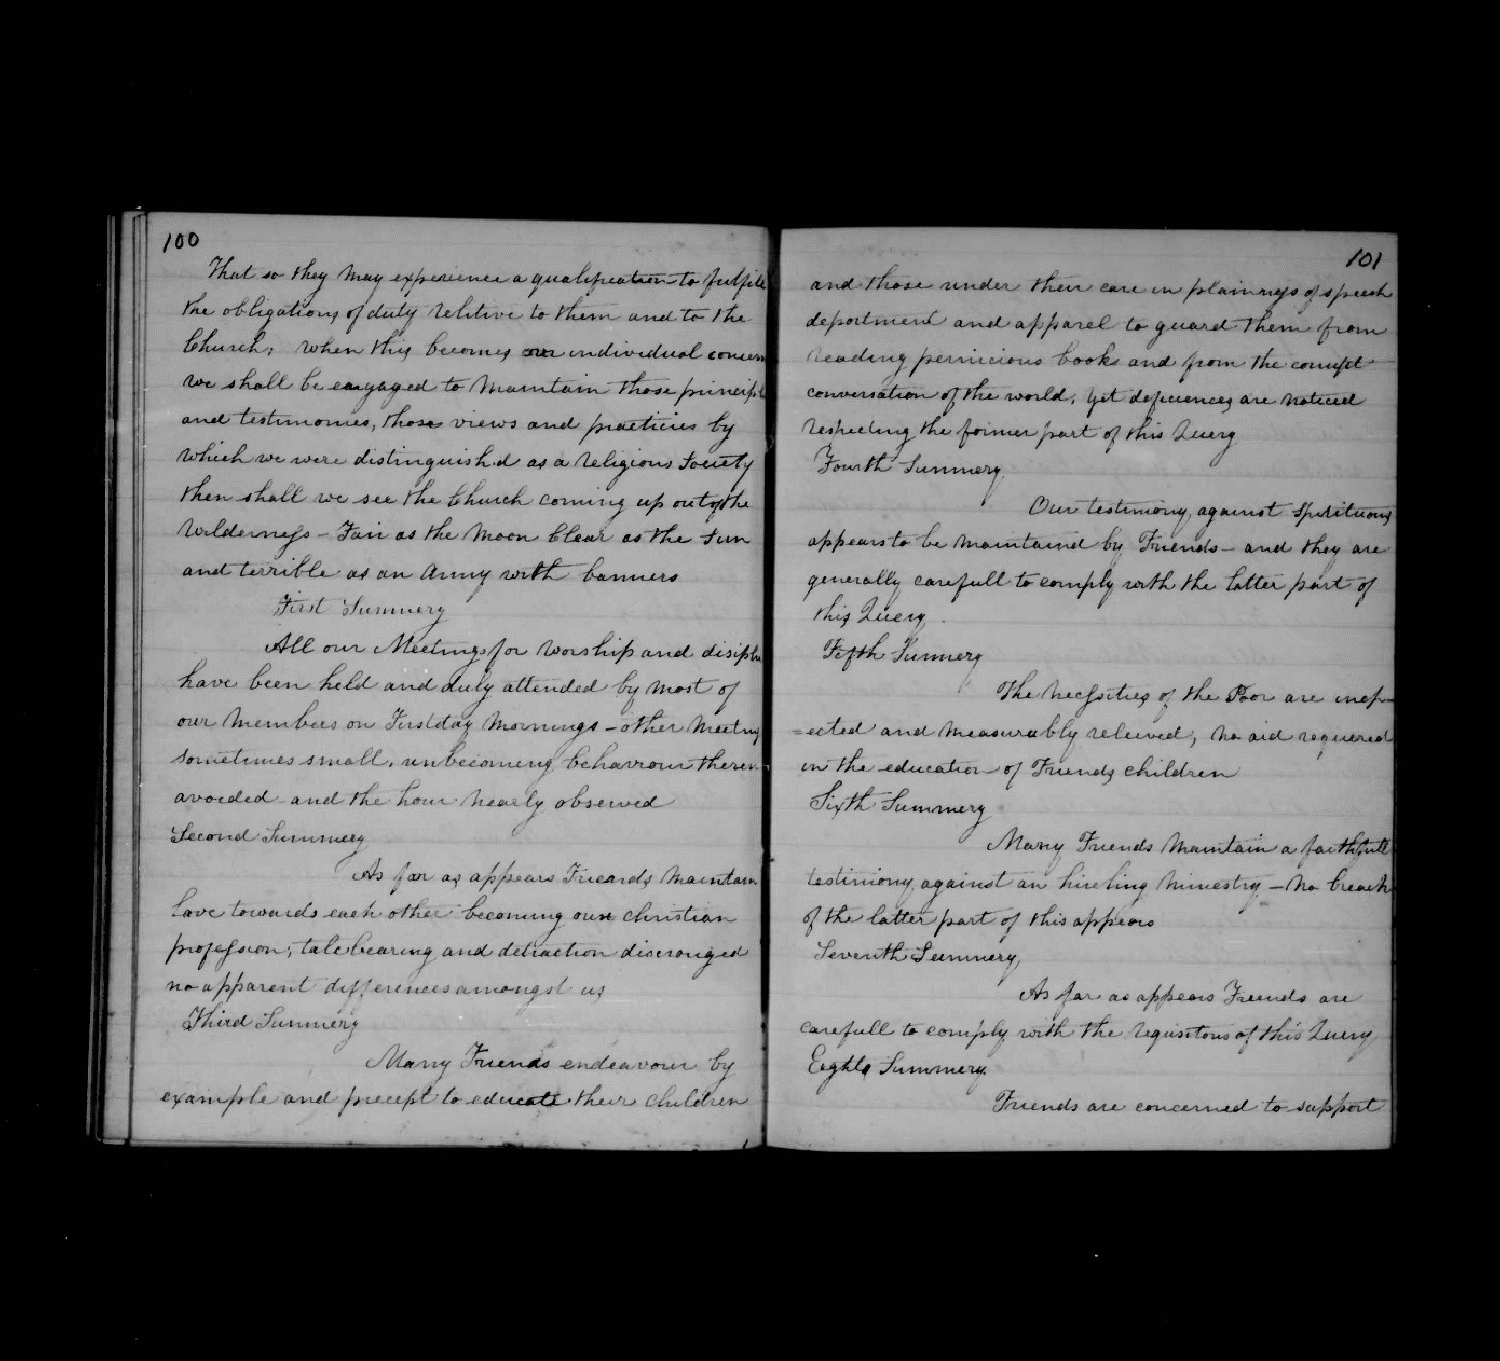 100
That so they may experience a qualification to fulfile
the obligations of duty relitive to them and to the
Church; when this becomes our individual concern
we shall be engaged to maintain those principl
and testimonies, those views and practicies by
which we were distinguishd as a religious Society
then shall we see the Church coming up out of the
Wilderness - Fair as the Moon Clear as the Sun
and terrible as an Army with banners
First Summery
All our Meetings for Worship and disiplin
have been held and duly attended by most of
our members on Firstday Mornings - other Meeting
sometimes small, unbecoming behaviour therein
avoided and the hour nearly observed
Second Summery
As far as appears Friends Maintain
Love towards each other becoming our christian
profession; talebearing and detraction discouraged
no apparent differences amongst us
Third Summery
Many Friends endeavour by
example and precept to educate their children
101
and those under their care in plainness of speech
deportment and apparel to guard them from
reading pernicious books and from the corrupt
conversation of the world; yet deficiences are noticed
respecting the former part of this Query
Fourth Summery
Our testimony against Spirituous
appears to be maintaind by Friends - and they are
generally carefull to comply with the latter part of
this Query
Fifth Summery
The necessities of the Poor are insp-
=ected and measurably releived, no aid requered
in the education of Friends children
Sixth Summery
Many Friends Maintain a faithfull
testimony against an hireling Ministry - no breach
of the latter part of this appears
Seventh Summery
As far as appears Friends are
carefull to comply with the requisitons of this Query
Eighth Summery
Friends are concerned to support